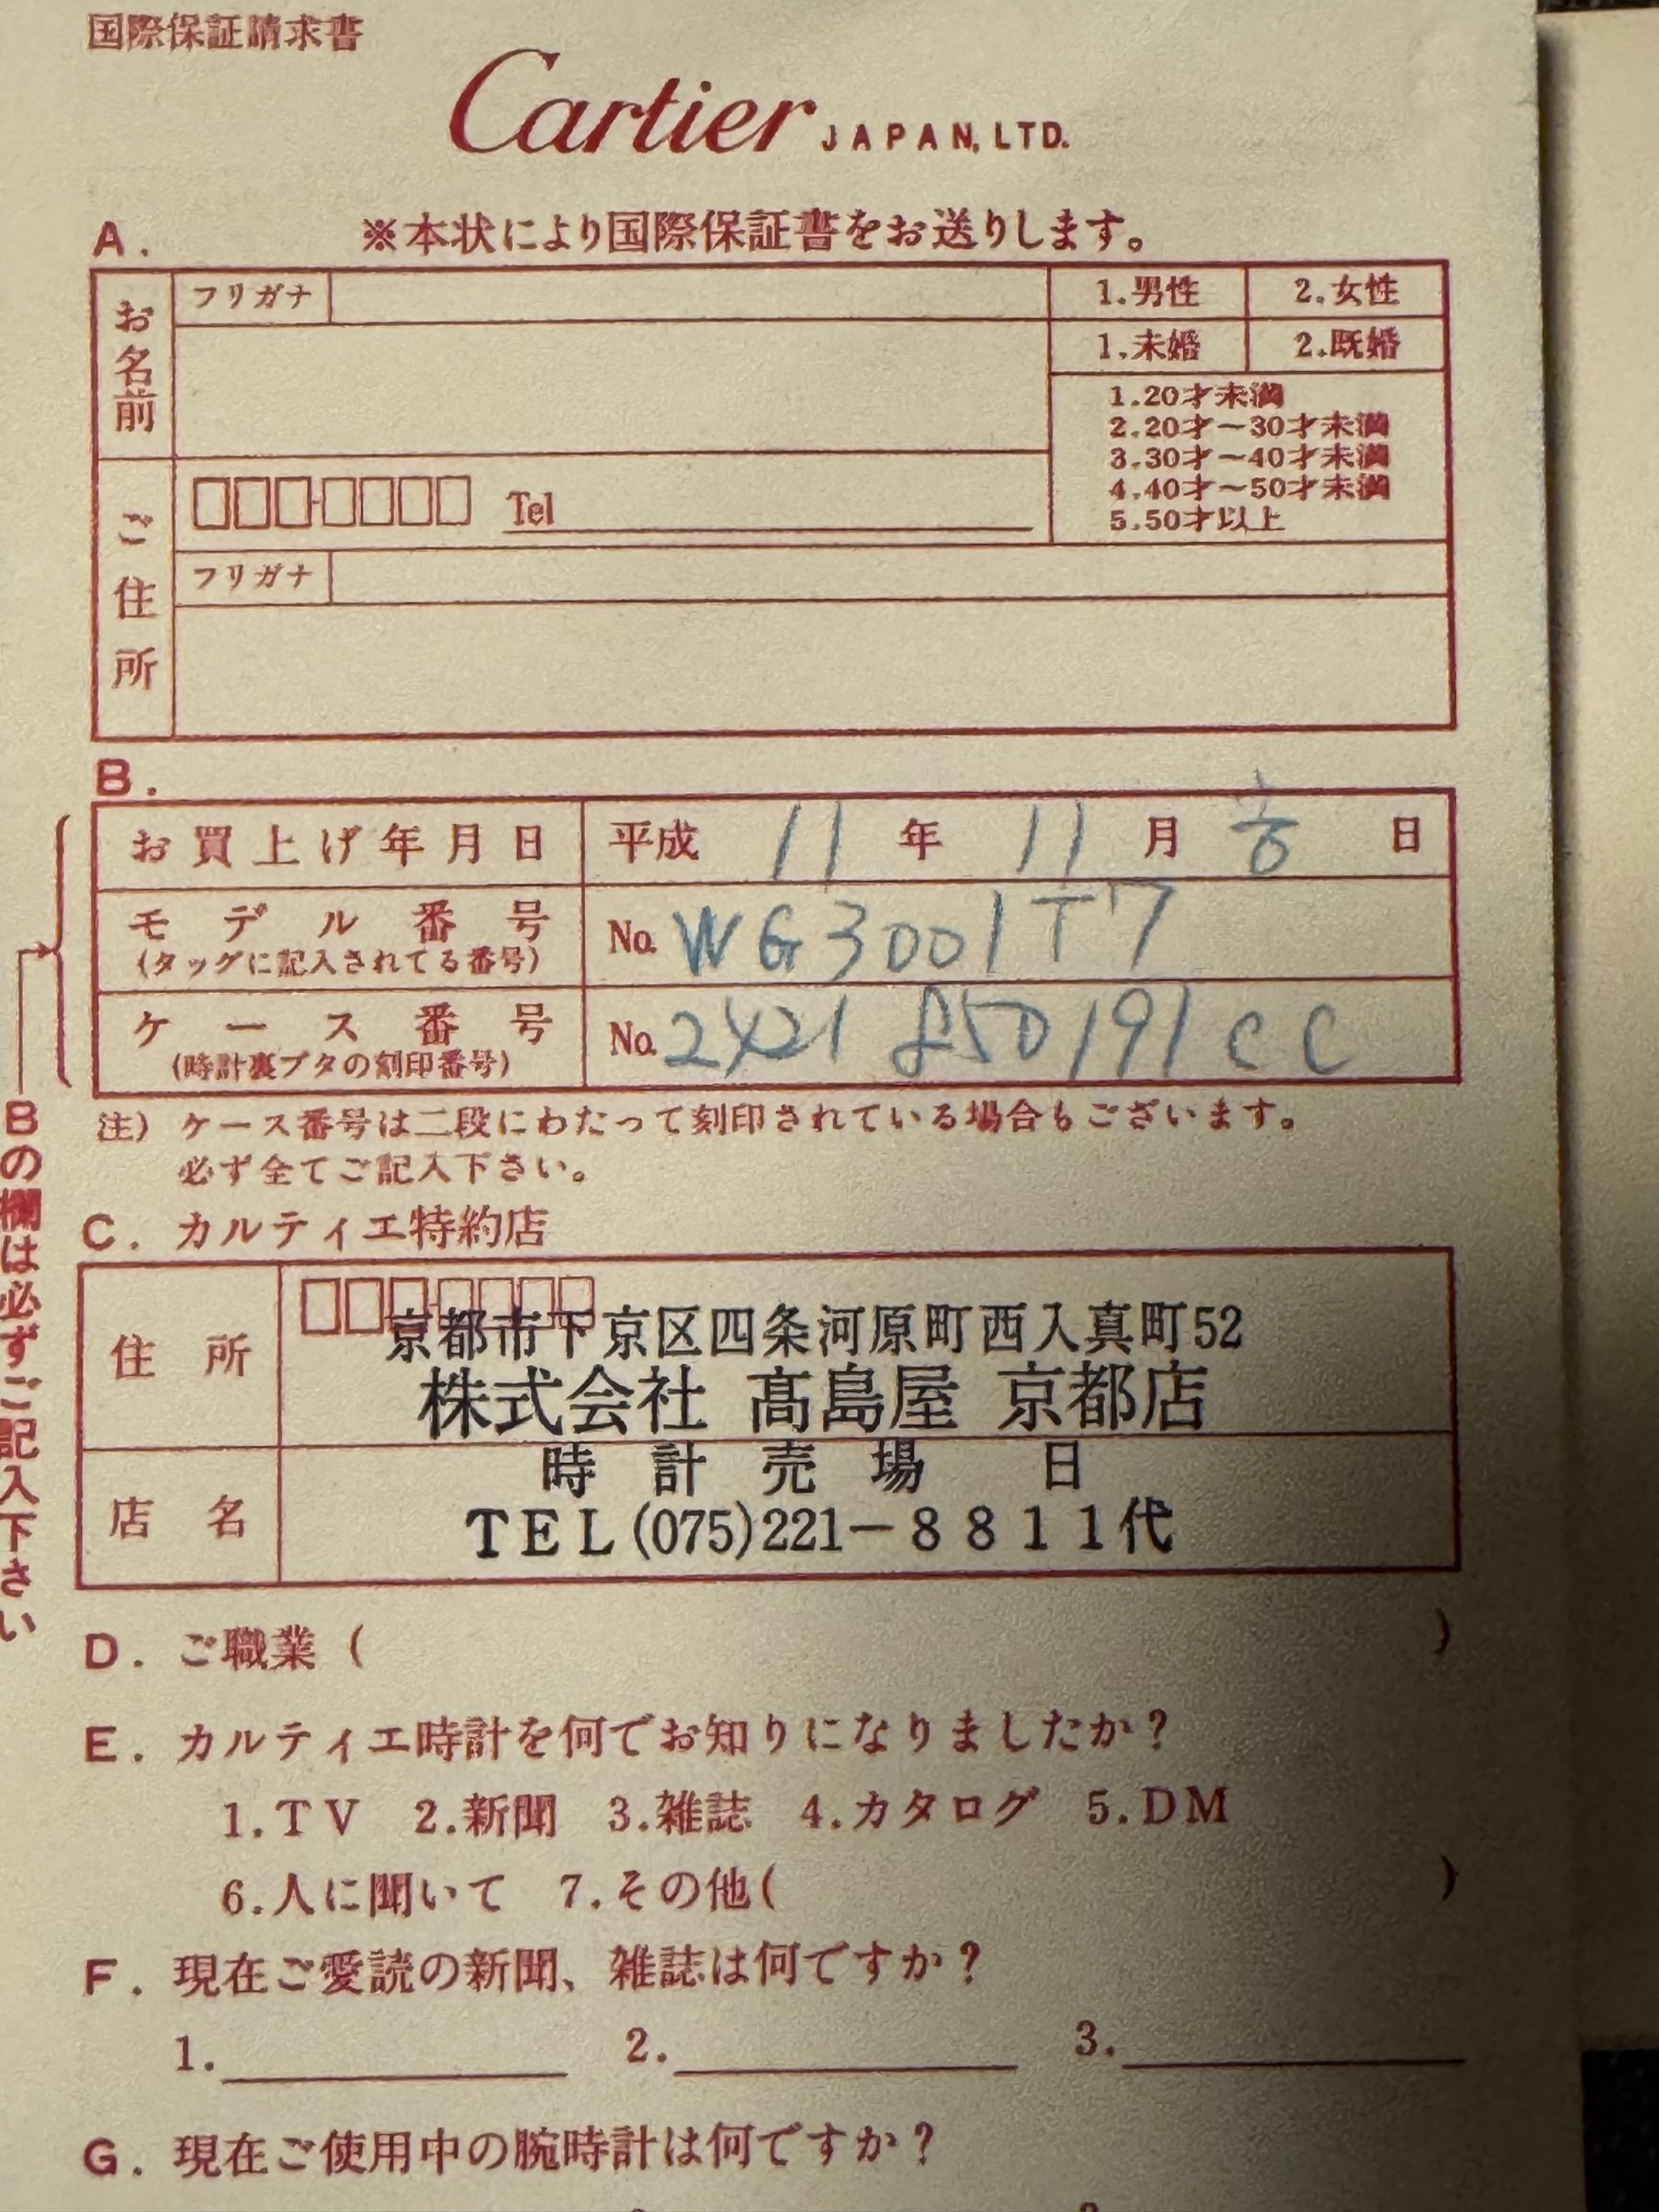 国際保証請求書
Cartier JAPAN, LTD.
A. ※本状により国際保証書をお送りします。
お名前 フリガナ 1.男性 2.女性
1.未婚 2.既婚
1.20才未満
2.20才〜30才未満
3.30才〜40才未満
4.40才〜50才未満
5.50才以上
ご住所 Tel
フリガナ
B.
お買上げ年月日 平成 11 年 11 月 日
モデル番号 No. WG3001T7
(タッグに記入されてる番号)
ケース番号 No. 2421 850191CC
(時計裏ブタの刻印番号)
Bの欄は必ずご記入下さい
注) ケース番号は二段にわたって刻印されている場合もございます。
必ず全てご記入下さい。
C. カルティエ特約店
住所 京都市下京区四条河原町西入真町52
株式会社 髙島屋 京都店
時計売場 日
店名 TEL(075)221-8811代
D. ご職業 ( )
E. カルティエ時計を何でお知りになりましたか?
1.TV 2.新聞 3.雑誌 4.カタログ 5.DM
6.人に聞いて 7.その他( )
F. 現在ご愛読の新聞、雑誌は何ですか?
1. 2. 3.
G. 現在ご使用中の腕時計は何ですか?